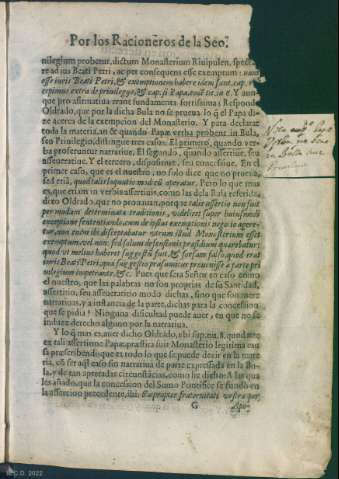 Por los Racioneros de la Seo.
uilegium probetur, dictum Monasterium Riuipulen. specta
re ad ius Beati Petri, ac per consequens esse exemptum: nam
esse iuris Beati Petri, & exemptionem habere idem sunt, cap.
cepimus extra de priuilegijs, & cap. si Papa, eod. tit. in 6. Y aun-
que pro assertatiua erant fundamenta fortissima: Responde
Oldrado, que por la dicha Bula no se prueua lo q̃ el Papa di-
ze acerca de la exempcion del Monasterio. Y para declarar
toda la materia, añade quando Papa verba probent in Bula,
seu Priuilegio, distingue tres casos. El primero, quando ver-
ba proferuntur narratiuè. El segundo, quando assertiuè, seu
asseueratiuè. Y el tercero, dispositiuè, seu concessiuè. En el
primer caso, que es el nuestro, no solo dize que no prueua,
sed etiã, quod talis loquutio nihil operatur. Pero lo que mas
es, que etiam in verbis assertiuis, como las de la Bula referida,
dixo Oldrado, que no prouauan, porque talis assertio non fuit
per modum determinatæ traditionis, videlicet super huiusmodi
exceptione sententiando, cum de istius exemptionis negotio agere-
tur, non enim ibi disceptabatur vtrum illud Monasterium esset
exemptum, vel non, sed solum defensionis præsidium quærebatur:
quod vt melius haberet suggestũ fuit, & forsam falso, quod erat
iuris Beati Petri, quæ suggestio præsumitur processisse à parte pri
uilegium impetrante, &c. Pues que sera Señor en caso como
el nuestro, que las palabras no son proprias de su Santidad,
assertiuo, seu asseueratiuo modo dichas, sino que son mere
narratiuas, y a instancia de la parte, dichas para la concession
que se pidia? Ninguna dificultad puede auer, en que no se
induze derecho alguno por la narratiua.
Y lo q̃ mas es, auer dicho Oldrado, vbi sup. nu. 8. quod nec
ex tali assertione Papæ, præstita fuit Monasterio legitima cau
sa præscribendi: que es todo lo que se puede dezir en la mate
ria, cõ ser aqui esso sin narratiua de parte expressada en la Bu
la, y de tan apretadas circunstãcias, como he dicho: A las qua
les añado, que la concession del Sumo Pontifice se fundò en
la assercion precedente, ibi: Ea propter fraternitati vestræ per
G
B.C.D. 2022